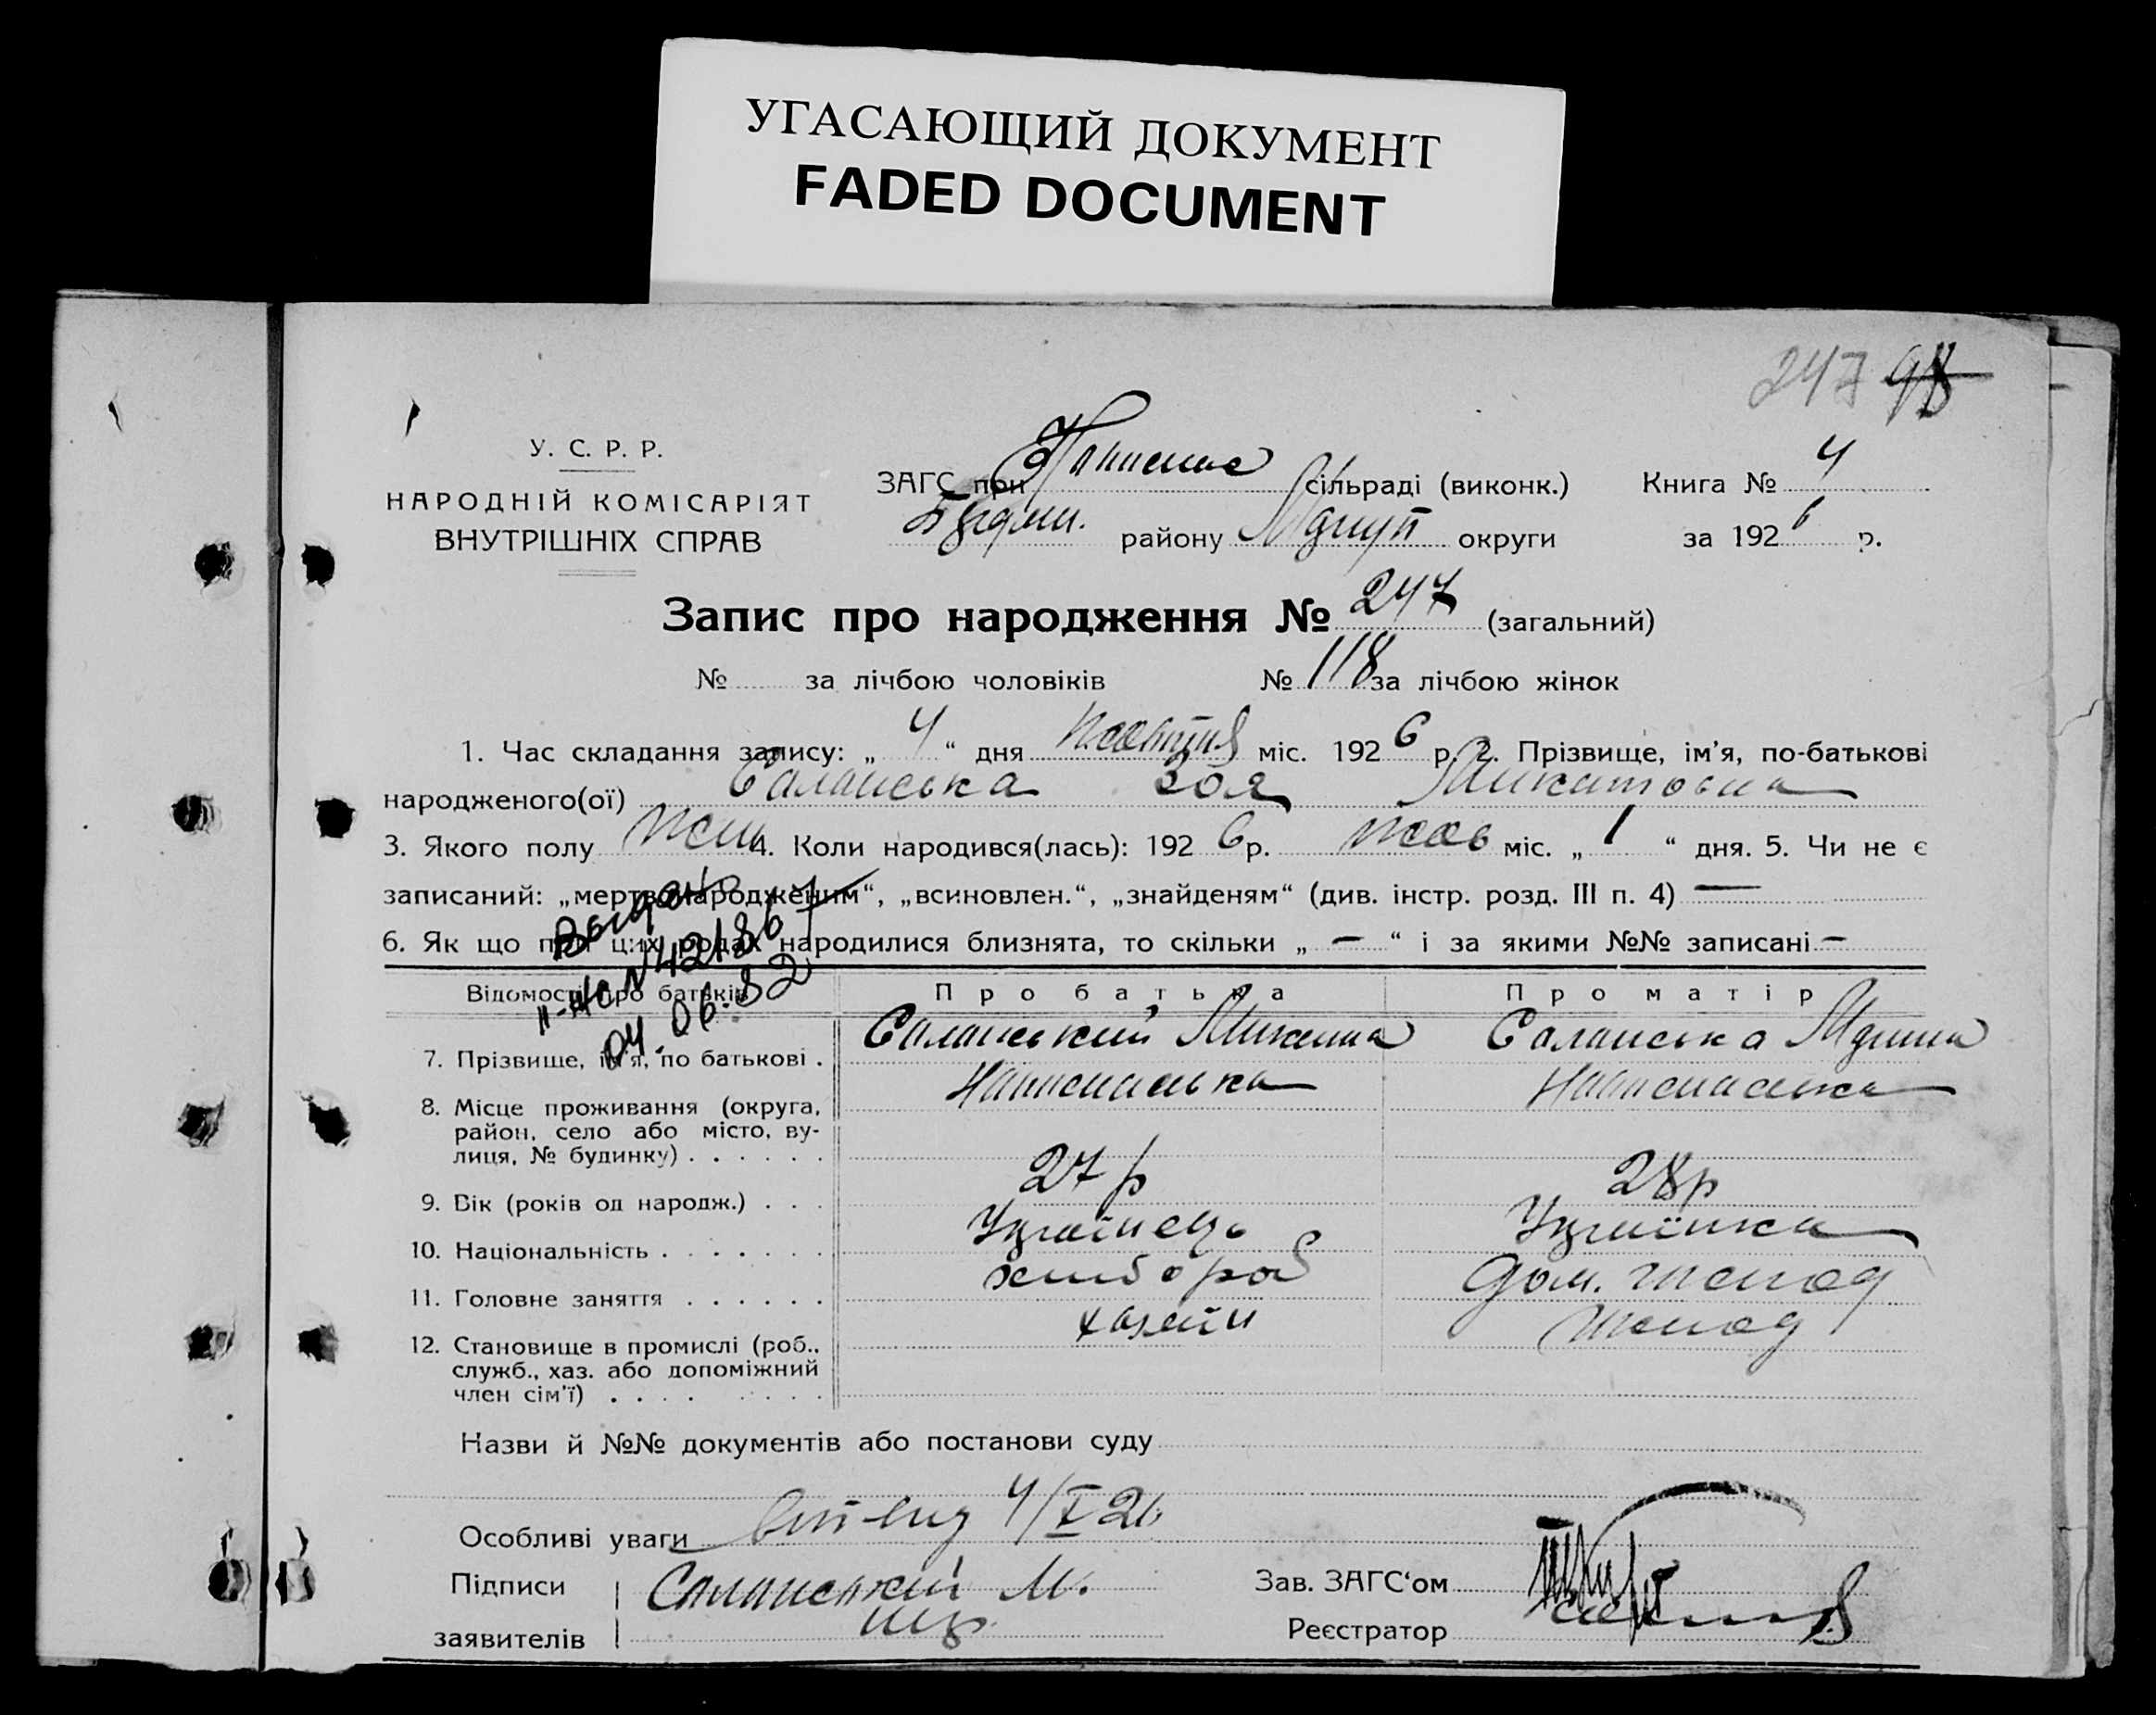 УГАСАЮЩИЙ ДОКУМЕНТ
FADED DOCUMENT
247 98
У. С. Р. Р.
НАРОДНІЙ КОМІСАРІЯТ
ВНУТРІШНІХ СПРАВ
ЗАГС при сільраді (виконк.)
району округи
Книга № 4
за 1926 р.
Запис про народження № 247 (загальний)
№ за лічбою чоловіків № 118 за лічбою жінок
1. Час складання запису: „ 4 “ дня жовтня міс. 1926 р. 2. Прізвище, ім’я, по-батькові
народженого(ої) Саланська Зоя Микитовна
3. Якого полу жін 4. Коли народився(лась): 1926 р. жов міс. „ 1 “ дня. 5. Чи не є
записаний: „мертвонародженим“, „всиновлен.“, „знайденям“ (див. інстр. розд. III п. 4) —
6. Як що при цих родах народилися близнята, то скільки „ — “ і за якими №№ записані —
04.06.82
Відомості про батьків
Про батька
Про матір
7. Прізвище, ім’я, по батькові . Саланський Микита Саланська
8. Місце проживання (округа,
район, село або місто, ву-
лиця, № будинку) . . . . . .
9. Вік (років од народж.) . . . 27 р 28 р
10. Національність . . . . . . . Українець Українка
11. Головне заняття . . . . . . хлібороб Дом.
12. Становище в промислі (роб.,
служб., хаз. або допоміжний
член сім’ї) . . . . . . . . хазяїн
Назви й №№ документів або постанови суду
Особливі уваги 4/X 26
Підписи
заявителів
Саланський М.
Зав. ЗАГС‘ом
Реєстратор